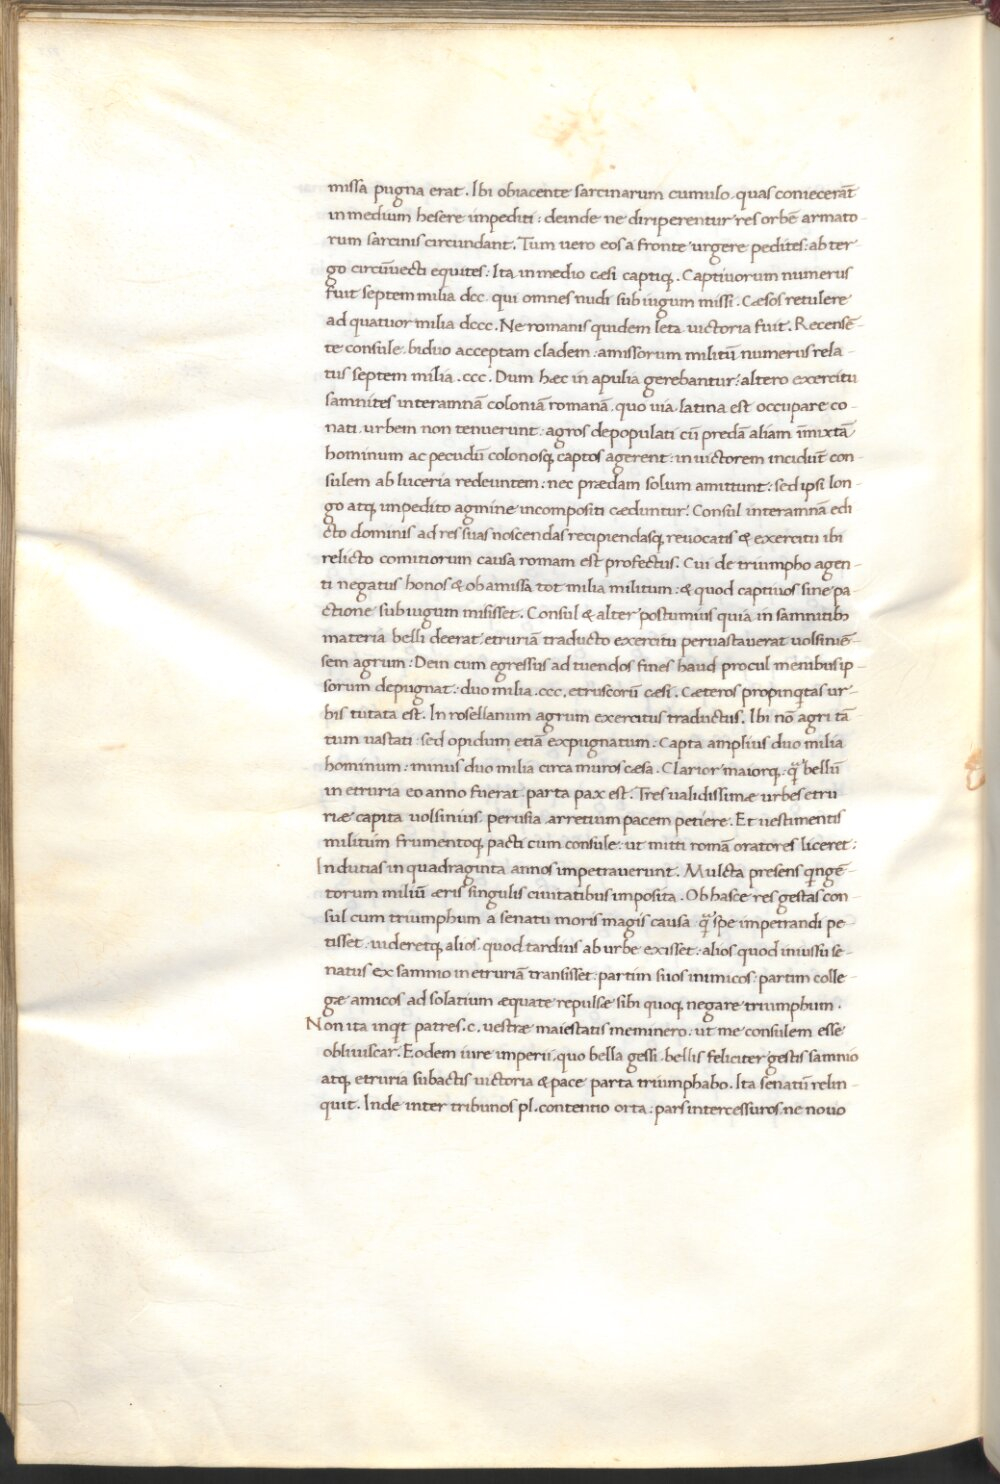 missa pugna erat. Ibi obiacente sarcinarum cumulo. quas coniecerāt
in medium hesere impediti: deinde ne diriperentur res orbē armato-
rum sarcinis circundant. Tum uero eos a fronte urgere pedites: ab ter
go circūuecti equites: Ita in medio cæsi captiq;. Captiuorum numerus
fuit septem milia dcc. qui omnes nudi sub iugum missi. Cæsos retulere
ad quatuor milia dccc. Ne romanis quidem leta uictoria fuit. Recensē-
te consule. biduo acceptam cladem: amissorum militū numerus rela-
tus septem milia .ccc. Dum hæc in apulia gerebantur: altero exercitu
samnites interamnā coloniā romanā. quo uia latina est occupare co-
nati. urbem non tenuerunt: agros depopulati cū predā aliam īmixtā
hominum ac pecudū colonosq; captos agerent: in uictorem incidūt con-
sulem ab luceria redeuntem: nec prædam solum amittunt: sed ipsi lon-
go atq; impedito agmine incompositi cæduntur. Consul interamnā edi
cto dominis ad res suas noscendas recipiendasq; reuocatis & exercitu ibi
relicto comitiorum causa romam est profectus. Cui de triumpho agen-
ti negatus honos & ob amissa tot milia militum: & quod captiuos sine pa-
ctione sub iugum misisset. Consul & alter postumius quia in samnitib;
materia belli deerat etruriā traducto exercitu peruastauerat uolsiniē-
sem agrum: Dein cum egressis ad tuendos fines haud procul menibus ip-
sorum depugnat: duo milia .ccc. etruscorū cæsi. Cæteros propinqitas ur-
bis tutata est. In rosellanum agrum exercitus traductus. Ibi nō agri tā-
tum uastati: sed opidum etiā expugnatum: Capta amplius duo milia
hominum: minus duo milia circa muros cæsa. Clarior maiorq; q̄ bellū
in etruria eo anno fuerat. parta pax est. Tres ualidissimæ urbes etru
riæ capita uolsiniis. perusia. arretium pacem petiere. Et uestimentis
militum frumentoq; pacti cum consule: ut mitti romā oratores liceret:
Indutias in quadraginta annos impetrauerunt. Mulcta presens qngē-
torum miliū æris singulis ciuitatibus imposita. Ob hasce res gestas con-
sul cum triumphum a senatu moris magis causa q̄ spe impetrandi pe-
tisset: uideretq; alios. quod tardius ab urbe exisset: alios quod iniussu se-
natus ex samnio in etruriā transisset: partim suos inimicos: partim colle-
gæ amicos ad solatium æquate repulsæ sibi quoq; negare triumphum.
Non ita inqt patres .c. uestræ maiestatis meminero: ut me consulem esse
obliuiscar. Eodem iure imperii. quo bella gessi. bellis feliciter gestis samnio
atq; etruria subactis uictoria & pace parta triumphabo. Ita senatū relin-
quit. Inde inter tribunos pl. contentio orta: pars intercessuros ne nouo